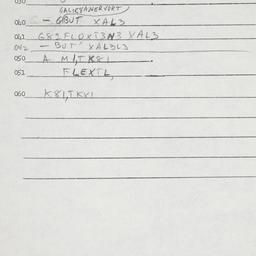 030
GALICYANERVORT
040 - GBUT XAL3
041 G82FLOXT3N3 XAL3
042 - BUT' XAL3L3
050 A M1,TK81 .
051 FLEXTL,
060 K81,TKV1